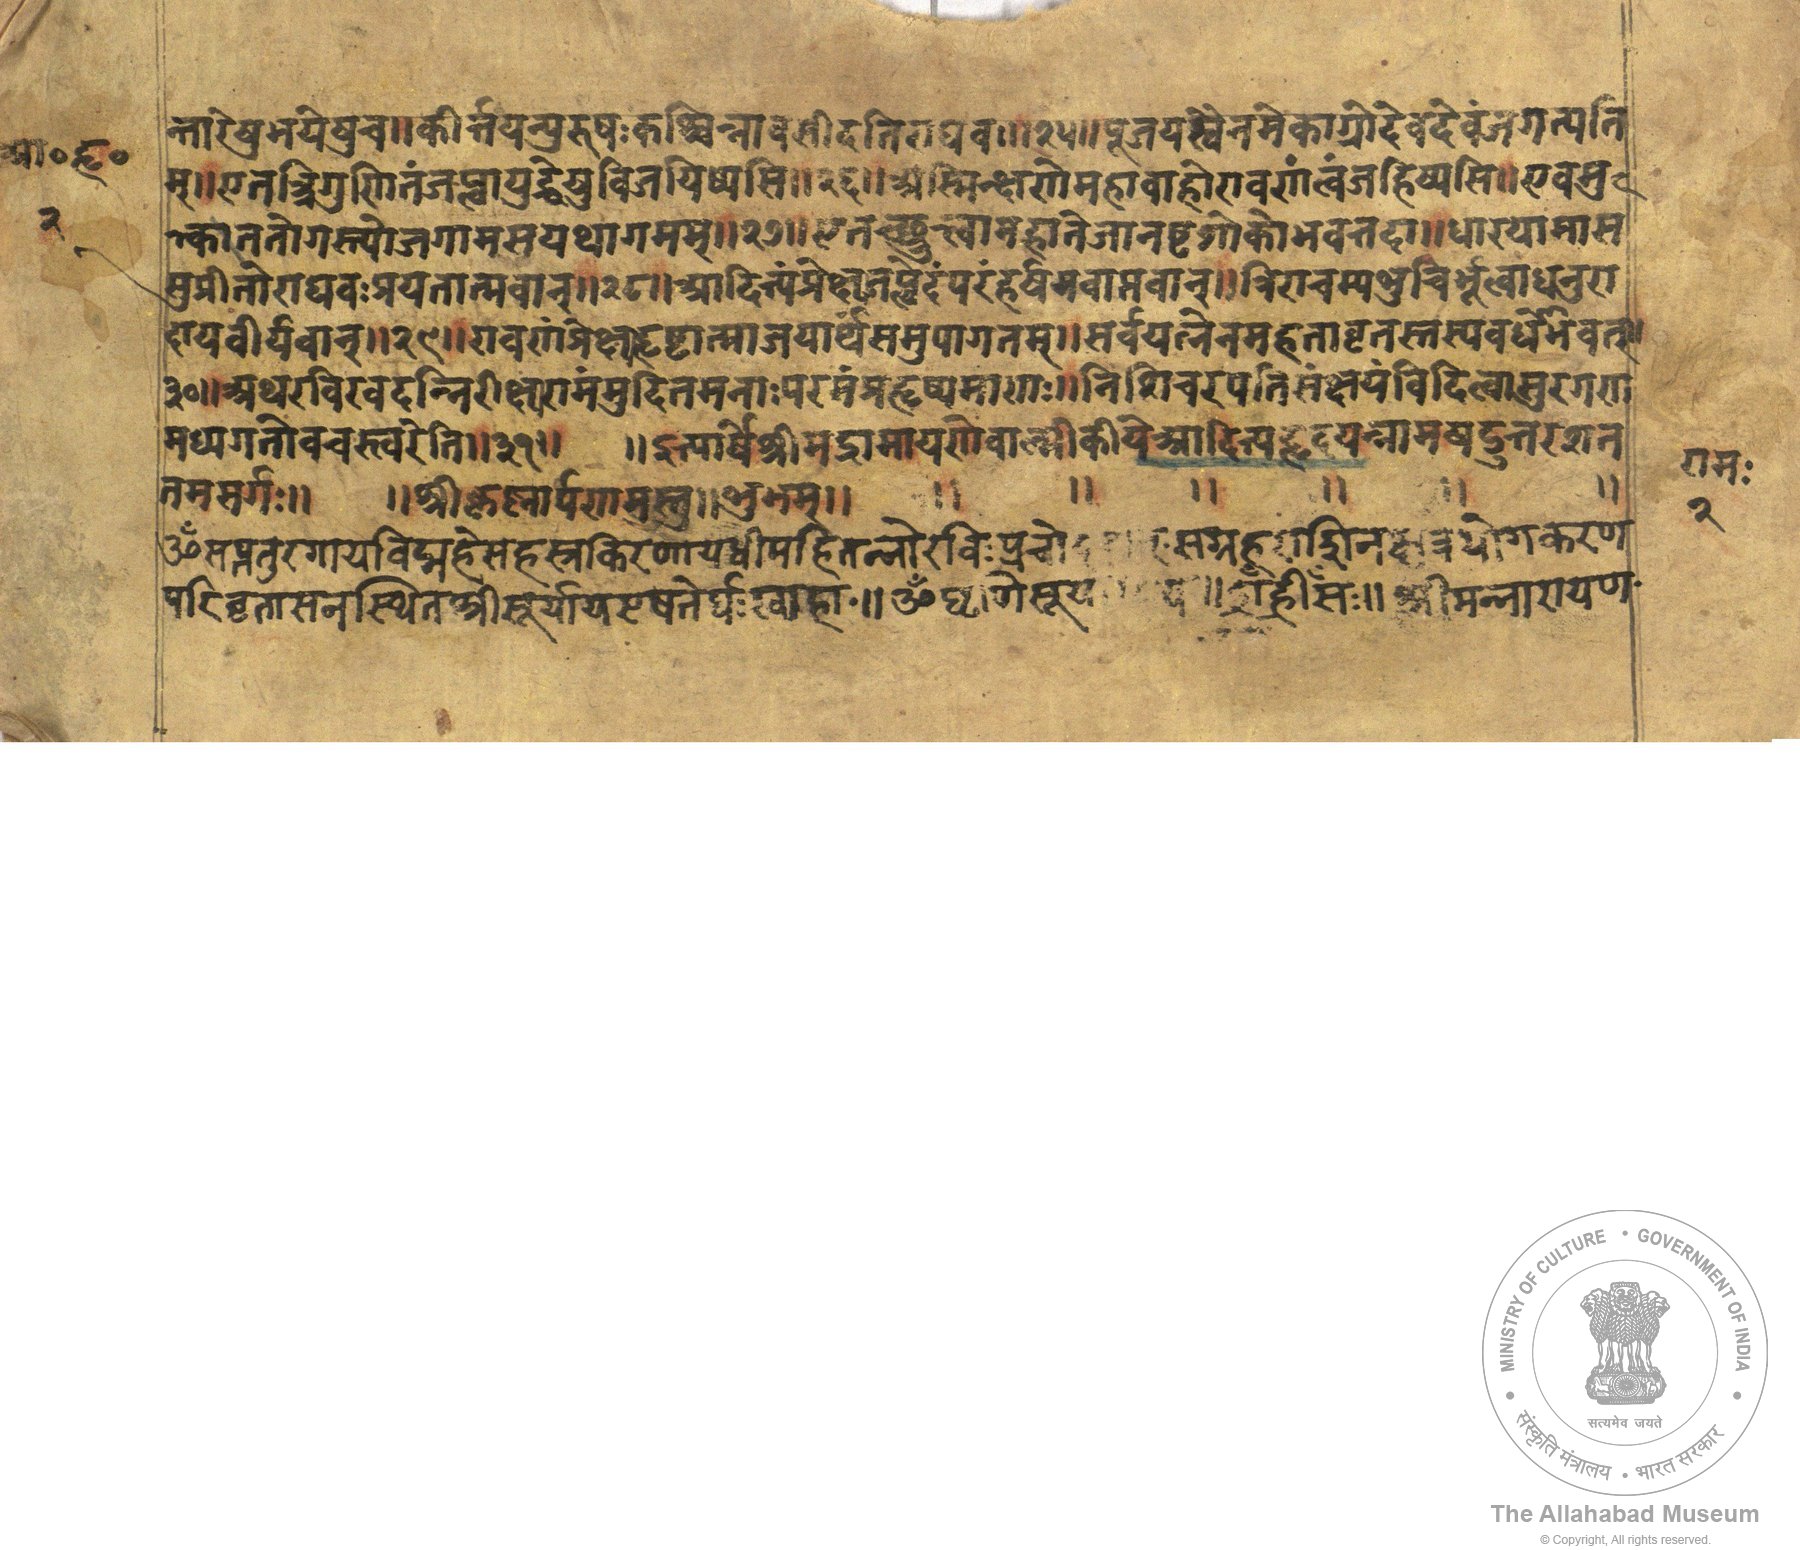 आ॰हृ॰
२
न्तारेषुभयेषुच॥कीर्त्तयन्पुरुषःकश्चिन्नावसीदतिराघव॥२५॥पूजयस्वैनमेकाग्रोदेवदेवंजगत्पति
म्॥एतत्त्रिगुणितंजप्त्वायुद्धेषुविजयिष्यसि॥२६॥अस्मिन्क्षणेमहावाहोरावणंत्वंजहिष्यसि॥एवमु
क्त्काततोगस्त्योजगामसयथागमम्॥२७॥एतच्छ्रुत्वामहातेजानष्टशोकोभवत्तदा॥धारयामास
सुप्रीतोराघवःप्रयतात्मवान्॥२८॥आदित्यंप्रेक्ष्यजप्त्वेदंपरंहर्षमवाप्तवान्॥त्रिराचम्यशुचिर्भूत्वाधनुरा
दायवीर्यवान्॥२९॥रावणंप्रेक्ष्यहृष्टात्माजयार्थंसमुपागतम्॥सर्वयत्नेनमहतावृतस्तस्यवधेभवत्॥
३०॥अथरविरवदन्निरीक्ष्यरामंमुदितमनाःपरमंप्रहृष्यमाणः॥निशिचरपतिसंक्षयंविदित्वासुरगण
मध्यगतोवचस्त्वरेति॥३१॥ ॥इत्यार्षेश्रीमद्रामायणेवाल्मीकीयेआदित्यहृदयन्नामषडुत्तरशत
तमसर्गः॥ ॥श्रीकृष्णार्पणमस्तु॥शुभम्॥ ॥ ॥ ॥ ॥ ॥ ॥
रामः
२
ॐसप्ततुरगायविद्महेसहस्रकिरणायधीमहितन्नोरविःप्रचो योगकरण
परिवृतासनस्थितश्रीसूर्यायएषतेर्घःस्वाहा॥ॐघृणिसूर्य ह्रींसः॥श्रीमन्नारायण
MINISTRY OF CULTURE • GOVERNMENT OF INDIA
सत्यमेव जयते
संस्कृति मंत्रालय • भारत सरकार
The Allahabad Museum
© Copyright, All rights reserved.